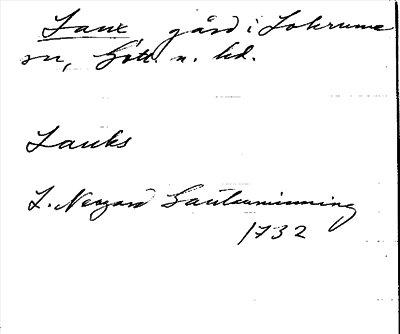 Laux, gård i Lokrume
sn, Gotl. n. hd.
Lauks
L. Neogard Gautauminning
1732